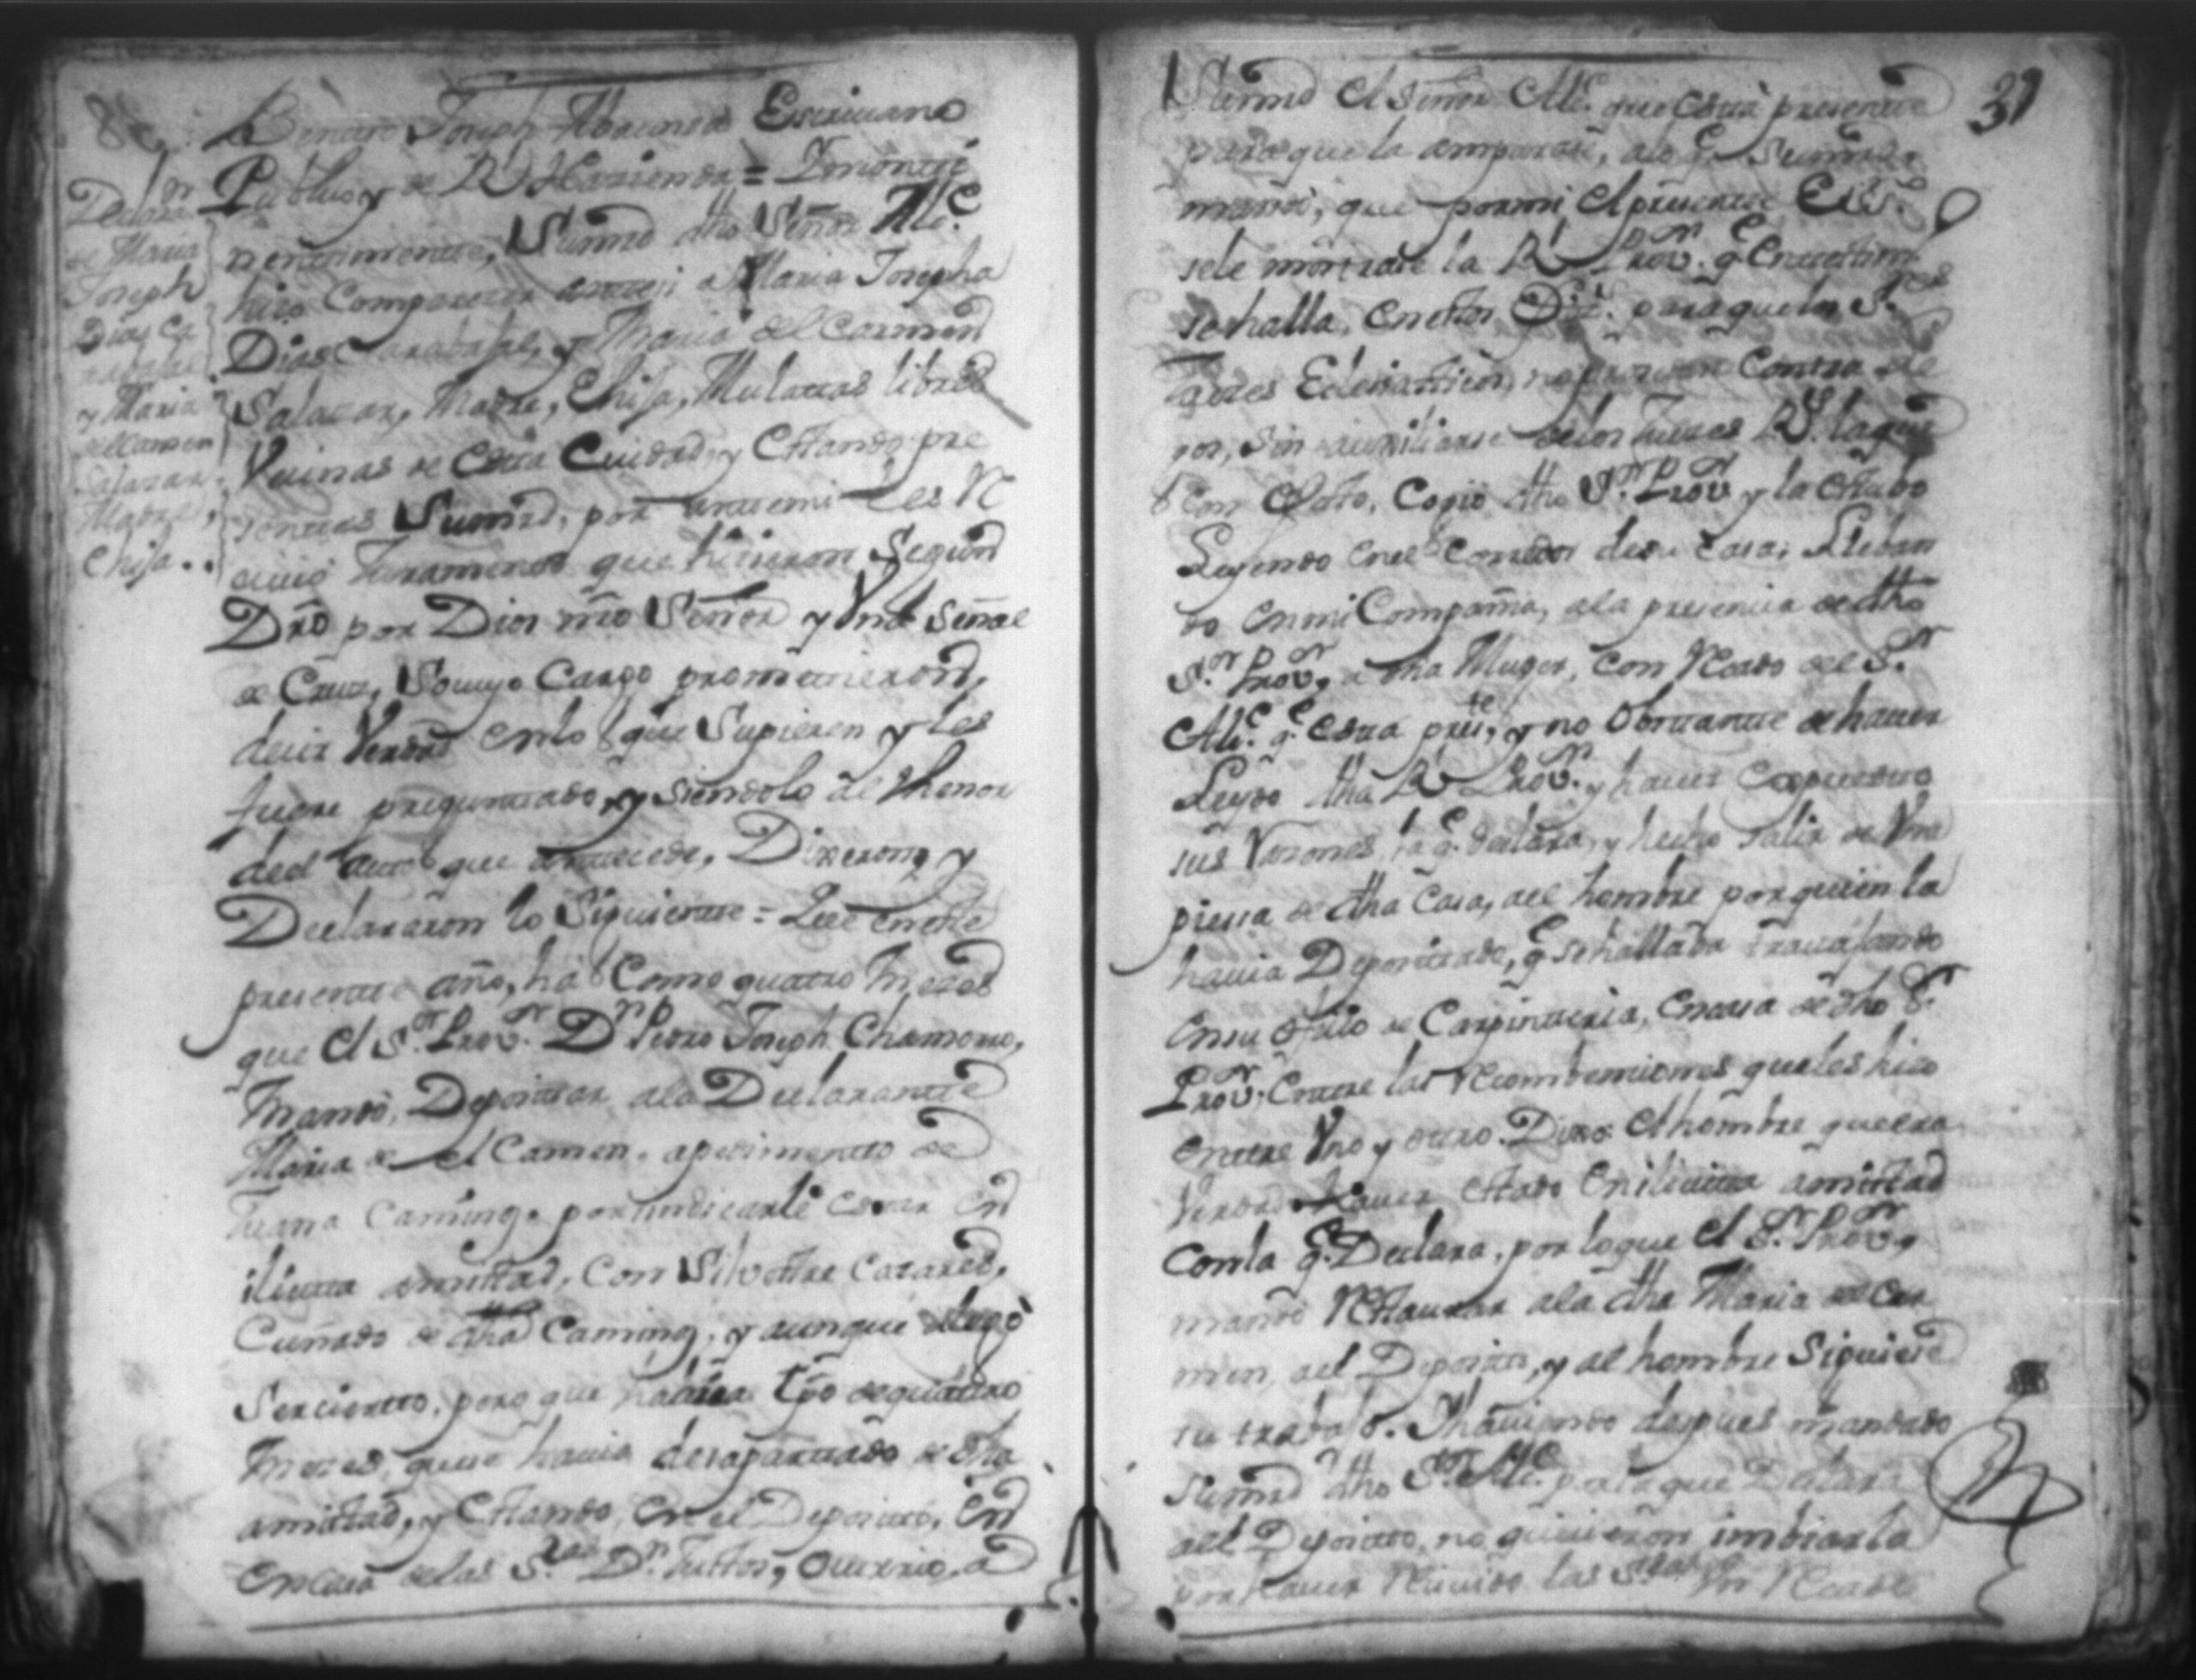 Declaraon
de Maria
Joseph
Dias Ca
y Maria
del Carmen
Salazar
Madre,
e hija..
Joseph Escriuano
Publico y de Rl Hazienda =
Sumrd dho Señor Alce
hizo Comparecer antemi a Maria Josepha
Dias y Maria del Carmen
Salazar, Madre, E hija, Mulatas libres
Vecinas de esta Ciudad, y Estando pre
sentes Sumrd, por antemi les R
civió Juramento que hicieron Segun
Dro por Dios nro Señor y Una Señal
de Cruz, So cuyo Cargo prometieron,
decir Verdad en lo que Supieren y les
fuere preguntado, y siendolo al thenor
del auto que antecede, Dixeron, y
Declararon lo Siguiente = Que en este
presente año, ha Como quatro Meses
que el Sor Provor Dn Pedro Joseph Chamorro,
Mandó, Depositar ala Declarante
Maria de el Carmen, apedimento de
Juana por indicarle estar en
ilicita amistad, Con Silvestre Cazares,
Cuñado de dha y aunque alegó
Ser cierto, pero que havia tpo de quatro
Meses, que se havia desapartado de dha
amistad, y Estando, en el Deposito, En
En casa delas Sras Da
37
Sumrd el Señor Alce que está presente
para que la amparase, alo qe Sumrd
mandó, que por mi el presente Esno
sele mostrase la Rl Provon qe
se halla, en estos para que los Sres
Juezes Eclesiasticos, no Contra
ros, sin auxiliarse delos Juezes Rs la que
Con Efecto, Copió dho Sor Provor y la Estubo
Leyendo en el Corredor de su Casa, Lleban
do en mi Compañia, ala presencia de dho
Sor Provor, a dha Muger, Con Recado del Sor
Alce qe está prete, y no Obstante de haver
Leydo dha Rl Provon y haver expuesto
sus Razones, la qe declara, y hecho Salir de Una
pieza de dha Casa, ael hombre por quien la
havia Depositado, qe se hallaba travajando
en su oficio de Carpinteria, en casa de dho Sor
Provor, Entre las Recombenciones que les hizo
entre Uno y otro. Dixo el hombre que era
Verdad haver Estado en ilicita amistad
Con la qe Declara, por lo que el Sor Provor,
mandó Restaurar ala dha Maria del Car
men, ael Deposito, y al hombre Siguiese
su trabajo. Y haviendo despues mandado
Sumrd dho Sor Alce para que
ael Deposito, no quisieron imbiarla
por haver Recivido las Sras Un Recado